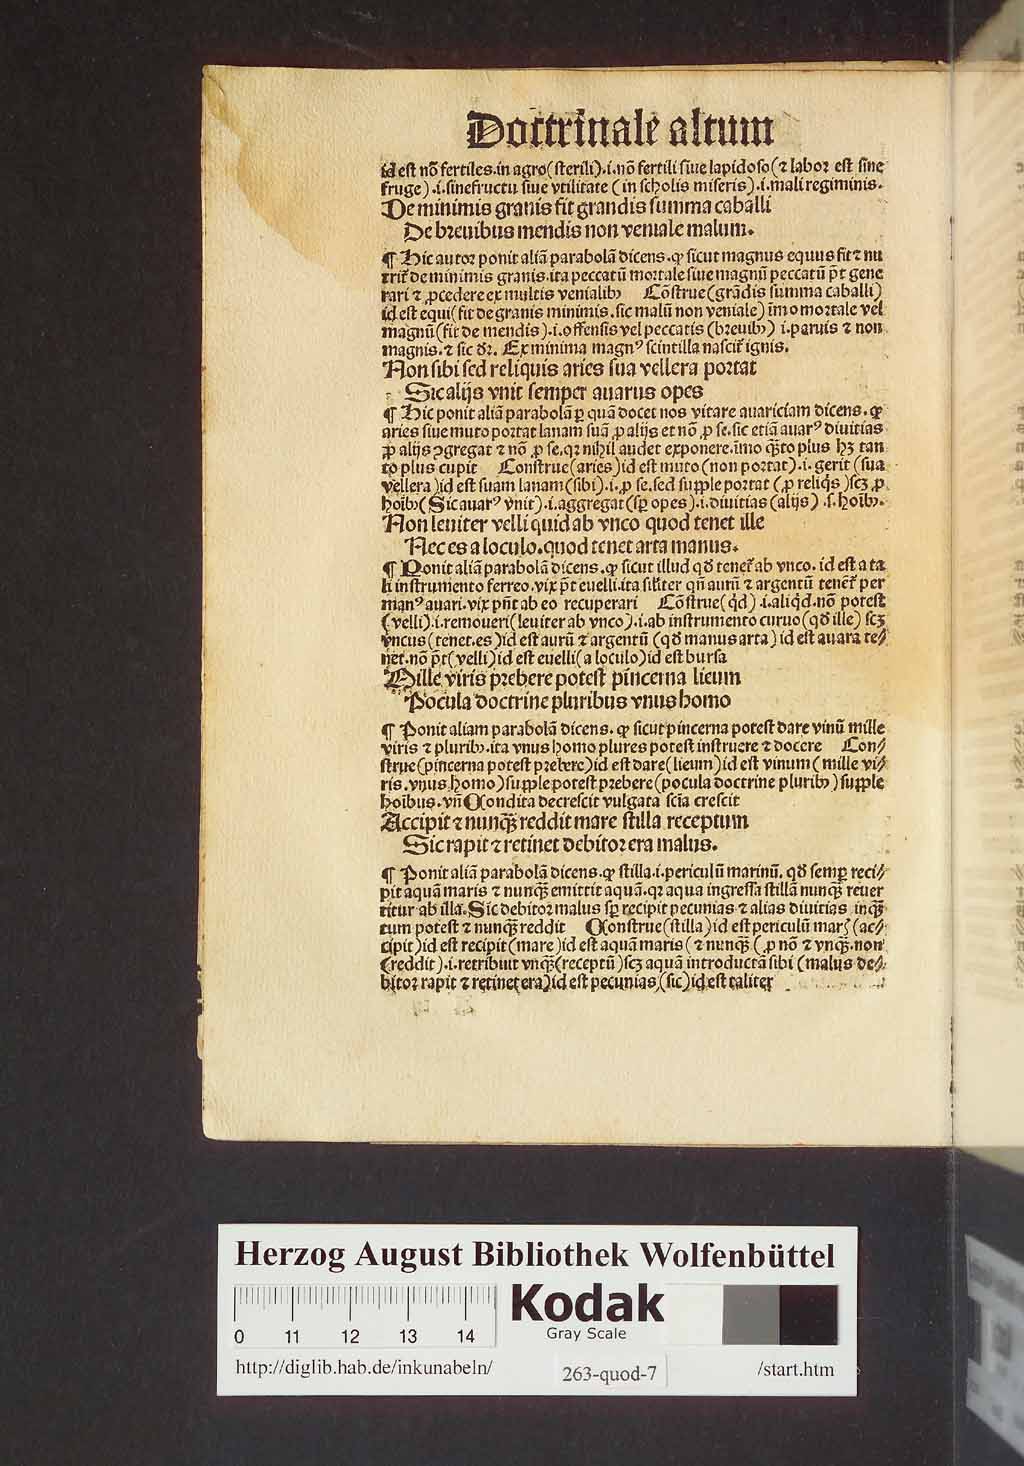 Doctrinale altum
id est nõ fertiles.in agro(sterili).i.nõ fertili siue lapidoso(⁊ labor est sine
fruge).i.sinefructu siue vtilitate (in scholis miseris).i.mali regiminis.
De minimis granis fit grandis summa caballi
De breuibus mendis non veniale malum.
¶ Hic autor ponit aliã parabolã dicens.ꝙ sicut magnus equus fit ⁊ nu
trit᷑ de minimis granis.ita peccatũ mortale siue magnũ peccatũ põt gene
rari ⁊ ꝓcedere ex multis venialibꝰ Cõstrue(grãdis summa caballi)
id est equi(fit de granis minimis.sic malũ non veniale) ĩmo mortale vel
magnũ(fit de mendis).i.offensis vel peccatis (breuibꝰ) i.paruis ⁊ non
magnis.⁊ sic dr̃. Ex minima magnꝰ scintilla nascit᷑ ignis.
Non sibi sed reliquis aries sua vellera portat
Sic alijs vnit semper auarus opes
¶ Hic ponit aliã parabolã ꝑ quã docet nos vitare auariciam dicens.ꝙ
aries siue muto portat lanam suã ꝓ alijs et nõ ꝓ se.sic etiã auarꝰ diuitias
ꝓ alijs ꝯgregat ⁊ nõ ꝓ se.qꝛ nihil audet exponere.ĩmo q̃to plus hꝫ tan
to plus cupit Construe(aries)id est muto(non portat).i.gerit(sua
vellera)id est suam lanam(sibi).i.ꝓ se.sed supple portat (ꝓ reliq̃s)scꝫ ꝓ
hoĩbꝰ(Sic auarꝰ vnit).i.aggregat(sꝑ opes).i.diuitias(alijs) .s.hoĩbꝰ.
Non leuiter velli quid ab vnco quod tenet ille
Nec es a loculo.quod tenet arta manus.
¶ Ponit aliã parabolã dicens.ꝙ sicut illud qd̃ tenet᷑ ab vnco.id est a ta
li instrumento ferreo.vix põt euelli.ita sil̃iter qñ aurũ ⁊ argentũ tenet᷑ per
manꝰ auari.vix pñt ab eo recuperari Cõstrue(q̃d) .i.aliq̃d.nõ potest
(velli).i.remoueri(leuiter ab vnco).i.ab instrumento curuo(qd̃ ille) scꝫ
vncus(tenet.es)id est aurũ ⁊ argentũ (qd̃ manus arta) id est auara te⸗
net.nõ põt(velli)id est euelli(a loculo)id est bursa
Mille viris prebere potest pincerna lieum
Pocula doctrine pluribus vnus homo
¶ Ponit aliam parabolã dicens.ꝙ sicut pincerna potest dare vinũ mille
viris ⁊ pluribꝰ.ita vnus homo plures potest instruere ⁊ docere Con⸗
strue(pincerna potest prebere)id est dare(lieum)id est vinum( mille vi⸗
ris.vnus homo)supple potest prebere(pocula doctrine pluribꝰ)supple
hoĩbus.vñ Condita decrescit vulgata scĩa crescit
Accipit ⁊ nunq̃ꝫ reddit mare stilla receptum
Sic rapit ⁊ retinet debitor era malus.
¶ Ponit aliã parabolã dicens.ꝙ stilla.i.periculũ marinũ.qd̃ semꝑ reci⸗
pit aquã maris ⁊ nunq̃ꝫ emittit aquã.qꝛ aqua ingressa stillã nunq̃ꝫ reuer
titur ab illa.Sic debitor malus sꝑ recipit pecunias ⁊ alias diuitias inq̃ꝫ
tum potest ⁊ nunq̃ꝫ reddit Construe(stilla)id est periculũ maris(ac⸗
cipit)id est recipit(mare)id est aquã maris(⁊ nunq̃ꝫ (ꝓ nõ ⁊ vnq̃ꝫ.non
(reddit).i.retribuit vnq̃ꝫ(receptũ)scꝫ aquã introductã sibi (malus de⸗
bitor rapit ⁊ retinet era)id est pecunias(sic)id est taliter
Herzog August Bibliothek Wolfenbüttel
0 11 12 13 14
Kodak
Gray Scale
http://diglib.hab.de/inkunabeln/ 263-quod-7 /start.htm